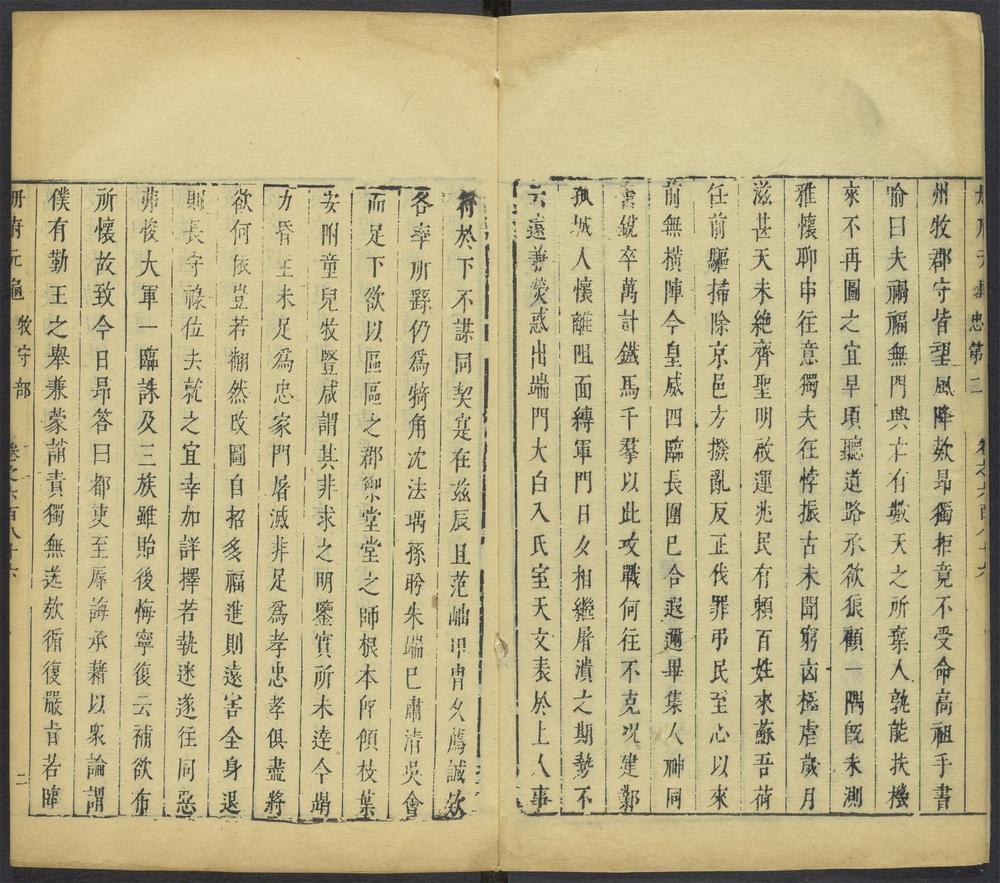 忠第二
州牧郡守皆望風降欵昂獨拒竟不受命高祖手書
喻曰夫禍福無門興亡有數天之所棄人孰能扶機
來不再圖之宜早頃聽道路承欲狼顧一隅旣未測
雅懷聊申往意獨夫狂悖振古未聞窮凶極虐歲月
滋甚天未絶齊聖明啟運兆民有賴百姓來蘇吾荷
任前驅掃除京邑方撥亂反正伐罪弔民至心以來
前無橫陣今皇威四臨長圍已合遐邇畢集人神同
奮銳卒萬計鐵馬千羣以此攻戰何往不克況建鄴
孤城人懷離阻面縛軍門日夕相繼屠潰之期勢不
云遠兼熒惑出端門大白入氐室天文表於上人事
符於下不謀同契寔在兹辰且范岫申胄夂薦誠欵
各率所繇仍爲犄角沈法瑀孫肹朱端巳肅清吳會
而足下欲以區區之郡禦堂堂之師根本旣傾枝葉
安附童兒牧豎咸謂其非求之明鑒實所未達今竭
力昏王未足爲忠家門屠滅非足爲孝忠孝俱盡將
欲何依豈若翻然改圖自招多福進則遠害全身退
則長守祿位去就之宜幸加詳擇若執迷遂往同惡
弗悛大軍一臨誅及三族雖貽後悔寧復云補欲布
所懷故致今日昂荅曰都吏至辱誨承藉以衆論謂
僕有勤王之舉兼蒙誚責獨無送欵循復嚴旨若臨
冊府元龜 牧守部 卷之六百八十六 二